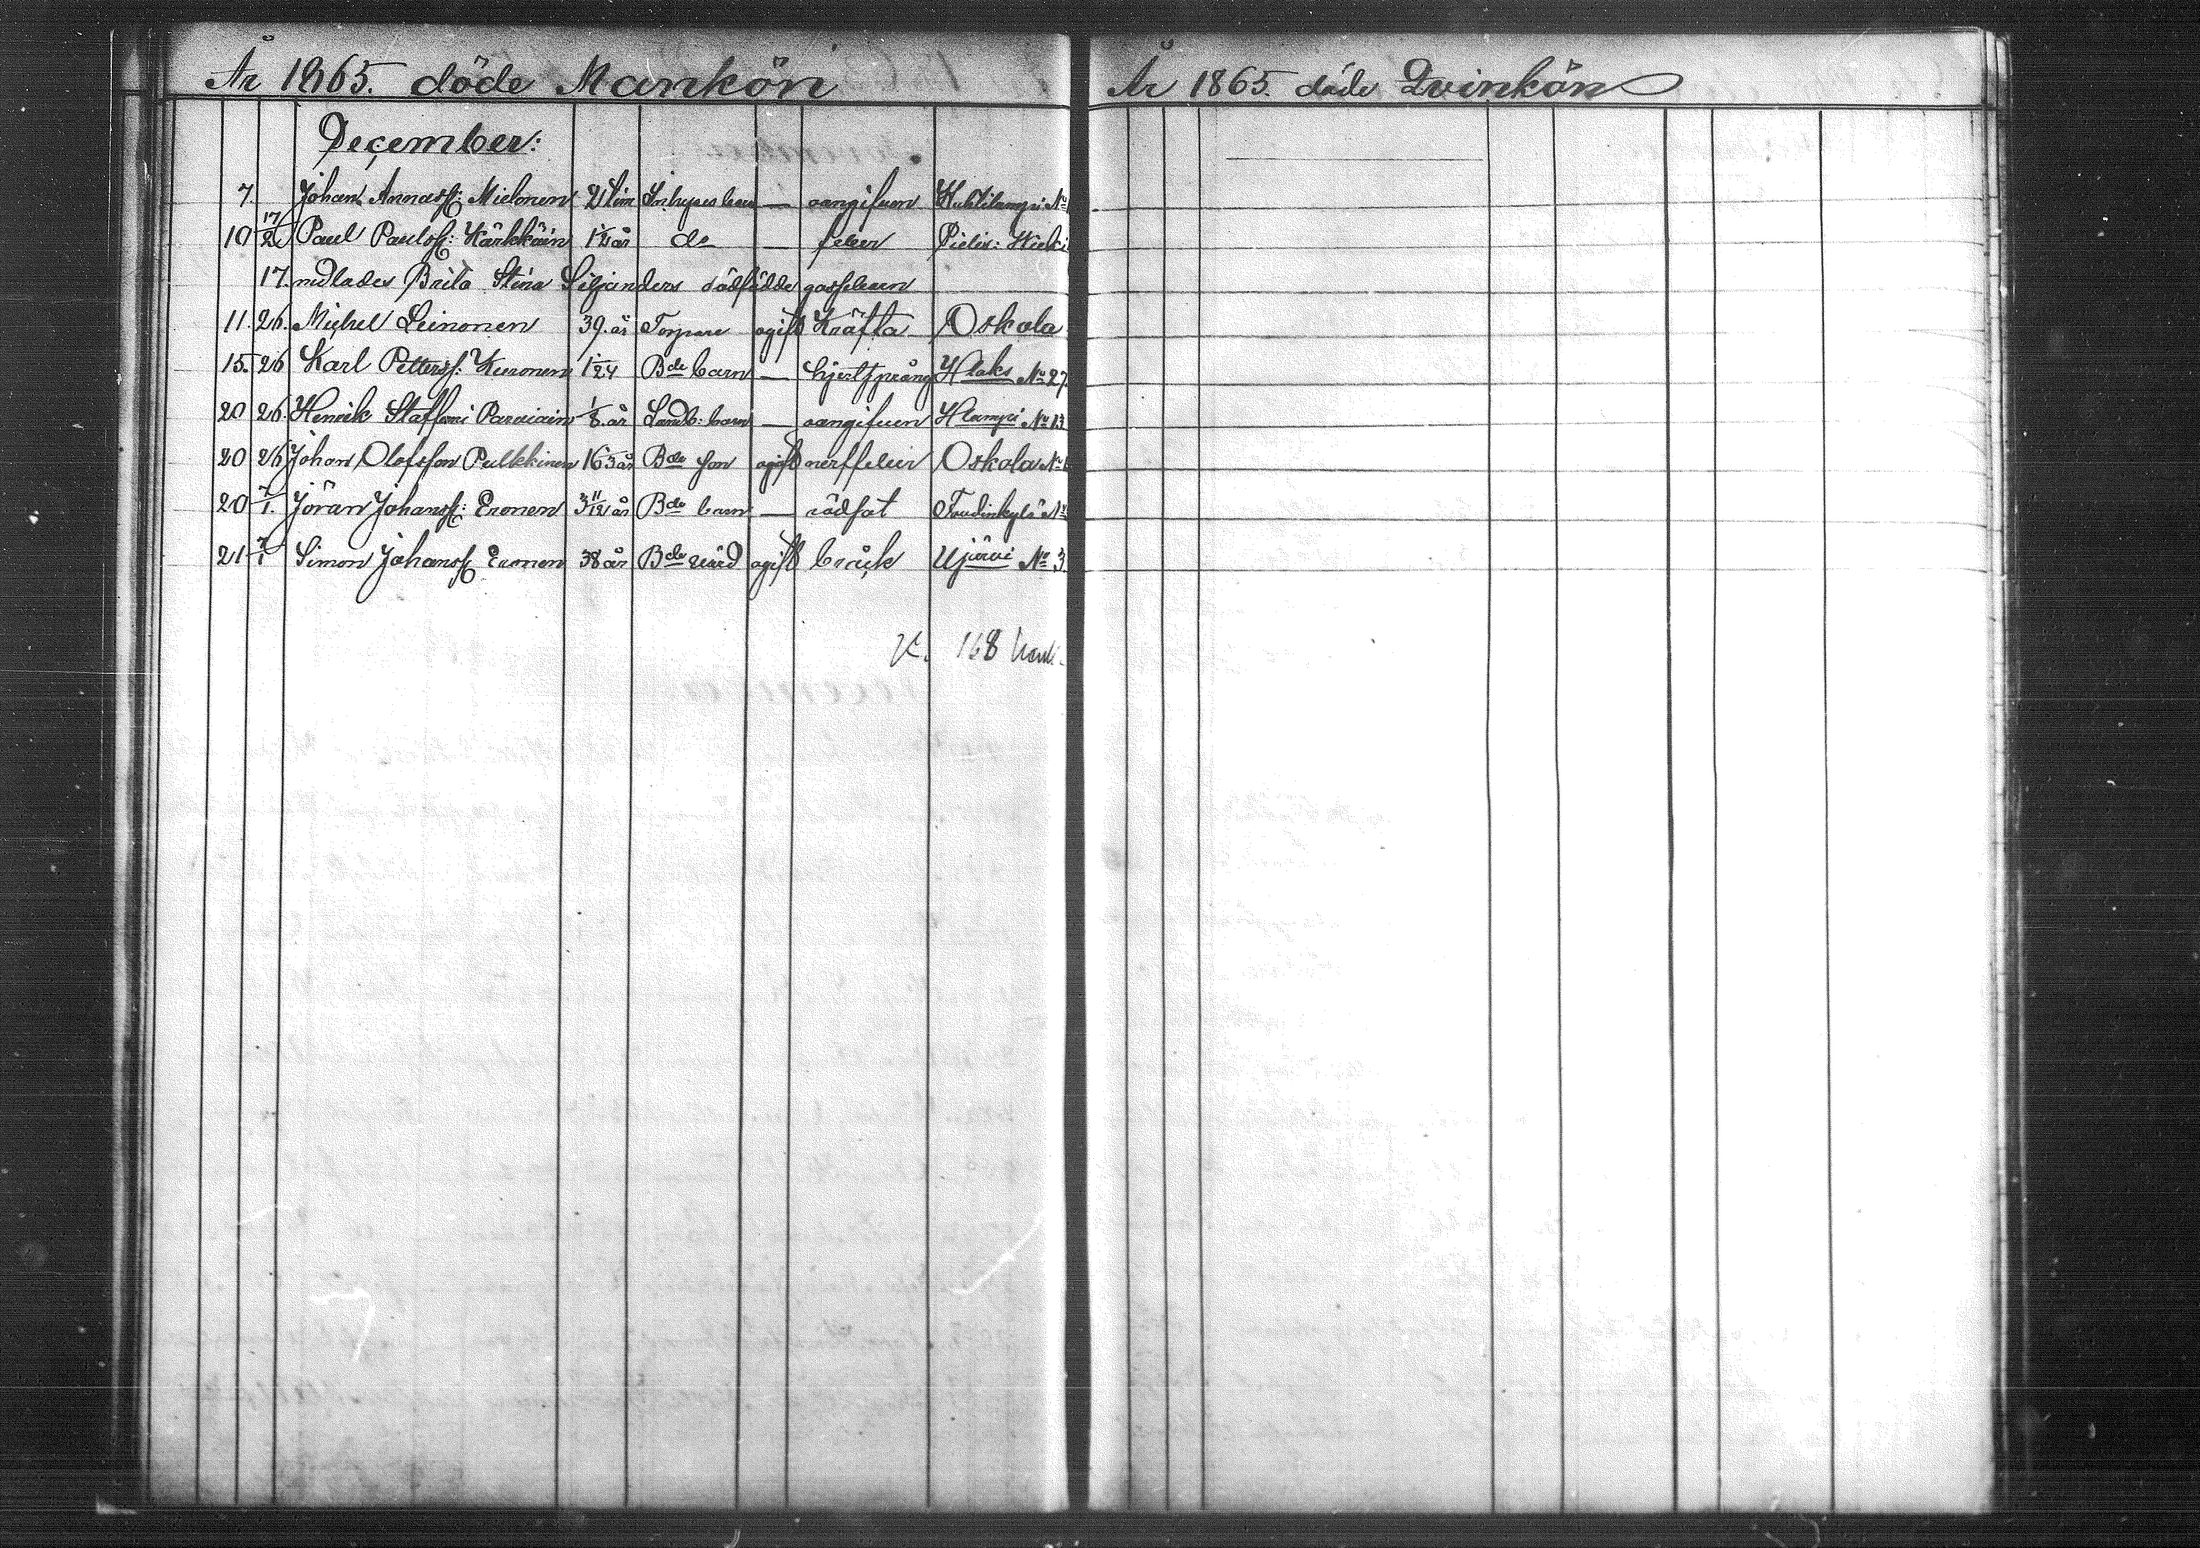 År 1865. döde Mankön
December:
7. Johan Annass: Mielonen 2 tim Inhyses barn — okänd Kuhlilampi No
10 17/2 Paul Paulss: Kärkkäin 1/2 år do — feber Pielis: Kieki
17. nedlades Brita Stina Siljanders dödfödde gossebarn
11. 26. Michel Leinonen 39. år Torpare ogift Kräfta Oskola
15. 26 Karl Petterss: Kuronen 1/24 Bde barn — hjertsprång Hlaks No 27
20 26. Henrik Staffans Parviain 1/8 år Landb: barn — Hlampi No 13
20 26 Johan Olofsson Pulkkinen 16 3 år Bde son ogift nerffeber Oskola No
20 7/1. Jöran Johanss: Eronen 3 11/12 år Bde barn — rödsot No
21 7/1 Simon Johanss: Eronen 38 år Bde värd ogift bråck Ujärvi No 3
168
År 1865. döde Qvinkön